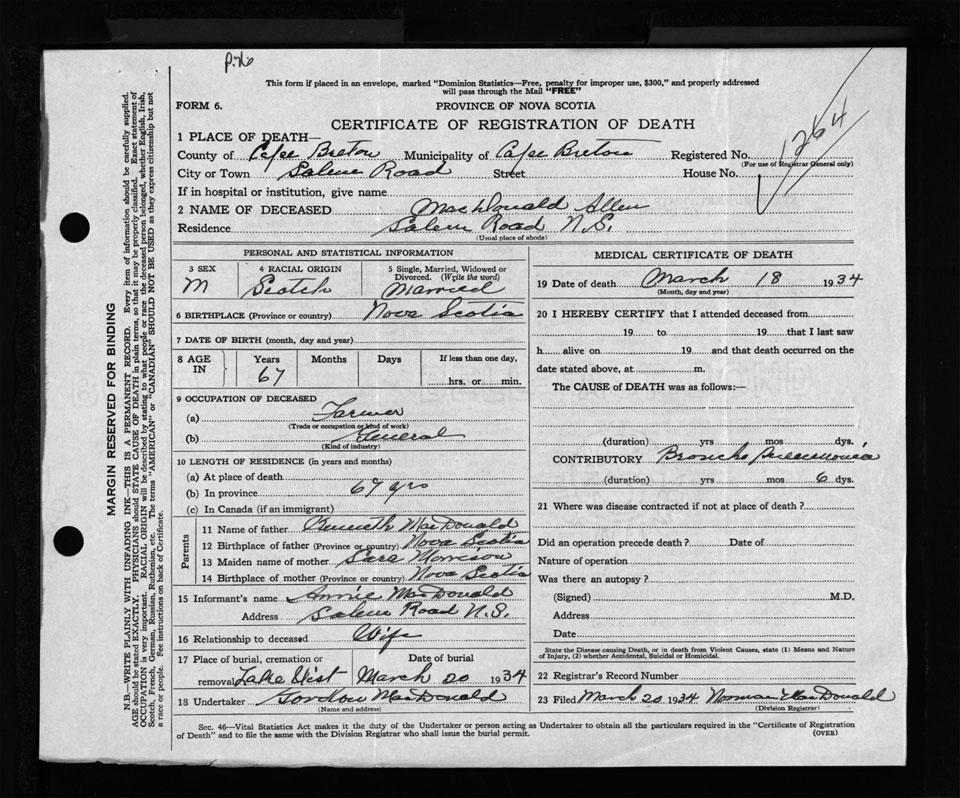 p. 76
This form if placed in an envelope, marked "Dominion Statistics—Free, penalty for improper use, $300," and properly addressed
will pass through the Mail "FREE"
FORM 6. PROVINCE OF NOVA SCOTIA
CERTIFICATE OF REGISTRATION OF DEATH
1264
1 PLACE OF DEATH—
County of Cape Breton Municipality of Cape Breton Registered No.
(For use of Registrar General only)
City or Town Salem Road Street House No.
If in hospital or institution, give name
2 NAME OF DECEASED MacDonald Allen
Residence Salem Road N.S.
(Usual place of abode)
PERSONAL AND STATISTICAL INFORMATION
3 SEX 4 RACIAL ORIGIN 5 Single, Married, Widowed or
Divorced. (Write the word)
M Scotch Married
6 BIRTHPLACE (Province or country) Nova Scotia
7 DATE OF BIRTH (month, day and year)
8 AGE IN Years Months Days If less than one day,
67 hrs. or min.
9 OCCUPATION OF DECEASED
(a) Farmer
(Trade or occupation or kind of work)
(b) General
(Kind of industry)
10 LENGTH OF RESIDENCE (in years and months)
(a) At place of death
(b) In province 67 yrs
(c) In Canada (if an immigrant)
Parents
11 Name of father Kenneth MacDonald
12 Birthplace of father (Province or country) Nova Scotia
13 Maiden name of mother Sara Morrison
14 Birthplace of mother (Province or country) Nova Scotia
15 Informant's name Annie MacDonald
Address Salem Road N.S.
16 Relationship to deceased Wife
17 Place of burial, cremation or Date of burial
removal Lake Uist March 20 1934
18 Undertaker Gordon MacDonald
(Name and address)
MEDICAL CERTIFICATE OF DEATH
19 Date of death March 18 1934
(Month, day and year)
20 I HEREBY CERTIFY that I attended deceased from
19 to 19 that I last saw
h alive on 19 and that death occurred on the
date stated above, at m.
The CAUSE of DEATH was as follows:—
(duration) yrs mos dys.
CONTRIBUTORY Broncho Pneumonia
(duration) yrs mos 6 dys.
21 Where was disease contracted if not at place of death?
Did an operation precede death? Date of
Nature of operation
Was there an autopsy?
(Signed) M.D.
Address
Date
State the Disease causing Death, or in death from Violent Causes, state (1) Means and Nature
of Injury, (2) whether Accidental, Suicidal or Homicidal.
22 Registrar's Record Number
23 Filed March 20 1934 Norman MacDonald
(Division Registrar)
Sec. 46—Vital Statistics Act makes it the duty of the Undertaker or person acting as Undertaker to obtain all the particulars required in the "Certificate of Registration
of Death" and to file the same with the Division Registrar who shall issue the burial permit. (OVER)
MARGIN RESERVED FOR BINDING
N.B.—WRITE PLAINLY WITH UNFADING INK—THIS IS A PERMANENT RECORD. Every item of information should be carefully supplied.
AGE should be stated EXACTLY. PHYSICIANS should STATE CAUSE OF DEATH in plain terms, so that it may be properly classified. Exact statement of
OCCUPATION is very important. RACIAL ORIGIN will be described by stating to what people or race the deceased person belonged, whether English, Irish,
Scotch, French, German, Russian, Ruthenian, etc. The terms "AMERICAN" or "CANADIAN" SHOULD NOT BE USED as they express citizenship but not
a race or people. See instructions on back of Certificate.